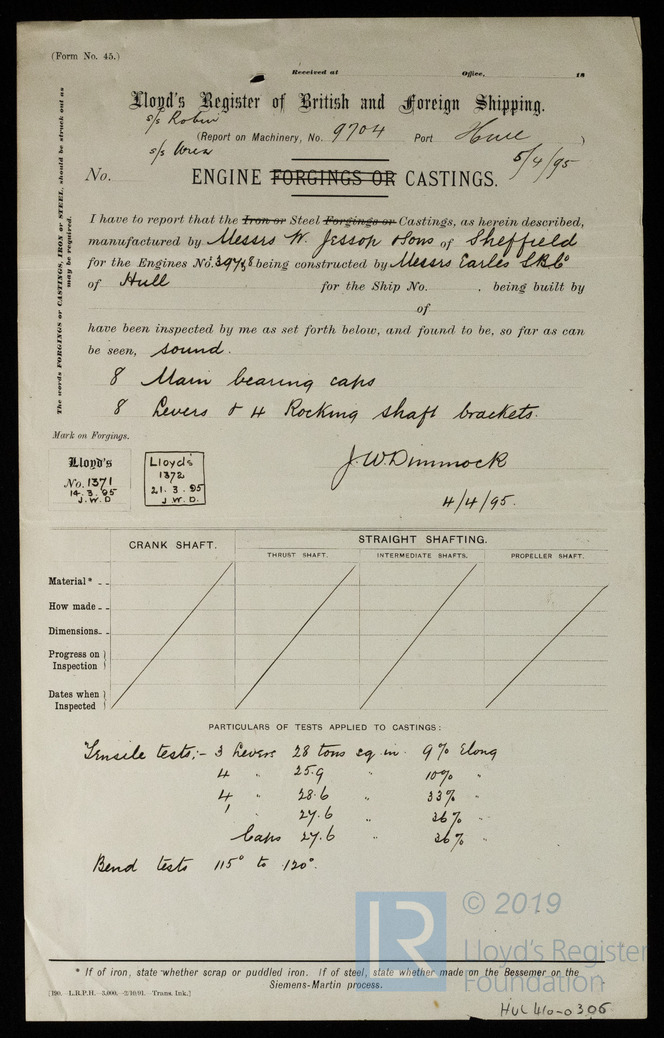 (Form No. 45.)
Received at Office, 18
Lloyd's Register of British and Foreign Shipping.
s/s Robin
(Report on Machinery, No. 9704 Port Hull )
s/s Wren
5/4/95
No.
ENGINE FORGINGS OR CASTINGS.
The words FORGINGS or CASTINGS, IRON or STEEL, should be struck out as
may be required.
I have to report that the Iron or Steel Forgings or Castings, as herein described,
manufactured by Messrs W. Jessop & Sons of Sheffield
for the Engines No. being constructed by Messrs Earles S.B.Co
of Hull for the Ship No. , being built by
of
have been inspected by me as set forth below, and found to be, so far as can
be seen, sound.
8 Main bearing caps
8 Levers & 4 Rocking shaft brackets.
Mark on Forgings.
J. W. Dimmock
4/4/95.
Lloyd's
No. 1371
14.3.95
J.W.D
Lloyd's
1372
21.3.95
J.W.D.
CRANK SHAFT. STRAIGHT SHAFTING.
THRUST SHAFT. INTERMEDIATE SHAFTS. PROPELLER SHAFT.
Material*
How made
Dimensions
Progress on
Inspection
Dates when
Inspected
PARTICULARS OF TESTS APPLIED TO CASTINGS:
Tensile tests:- 3 Levers 28 tons sq in. 9% Elong
4 " 25.9 " 10% "
4 " 28.6 " 33% "
1 " 27.6 " 36% "
Caps 27.6 " 36% "
Bend tests 115° to 120°.
© 2019
LR
Lloyd's Register
Foundation
* If of iron, state whether scrap or puddled iron. If of steel, state whether made on the Bessemer or the
Siemens-Martin process.
[190.—L.R.P.H.—5,000.—2/10/91.—Trans. Ink.]
HUL 410-0305